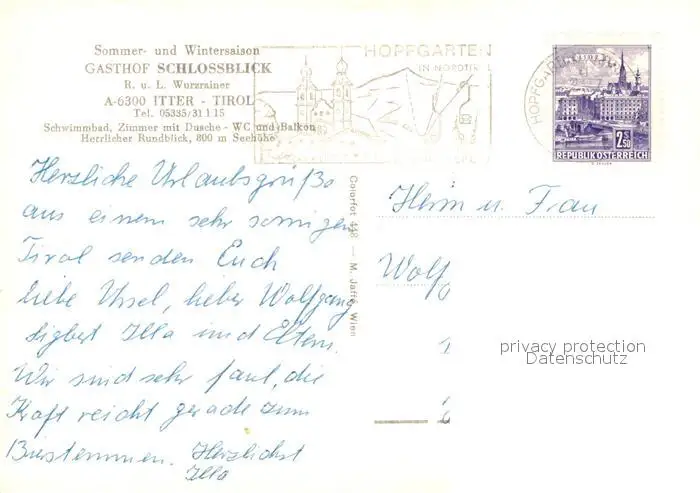 Sommer- und Wintersaison
GASTHOF SCHLOSSBLICK
R. u. L. Wurzrainer
A-6300 ITTER - TIROL
Tel. 05335/31 1 15
Schwimmbad, Zimmer mit Dusche - WC und Balkon
Herrlicher Rundblick, 800 m Seehöhe
HOPFGARTEN
IN NORDTIROL
HOPFGARTEN
LINZ
2.50
REPUBLIK ÖSTERREICH
Herzliche Urlaubsgrüße
aus einem sehr sonnigen
Tirol senden Euch
liebe Ursel, lieber Wolfgang
Sigbert Illa und Eltern.
Wir sind sehr faul, die
Kraft reicht gerade zum
Bierstemmen. Herzlichst
Illa
Colorfot 448 — M. Jaffé, Wien
Herrn u. Frau
Wolf
privacy protection
Datenschutz